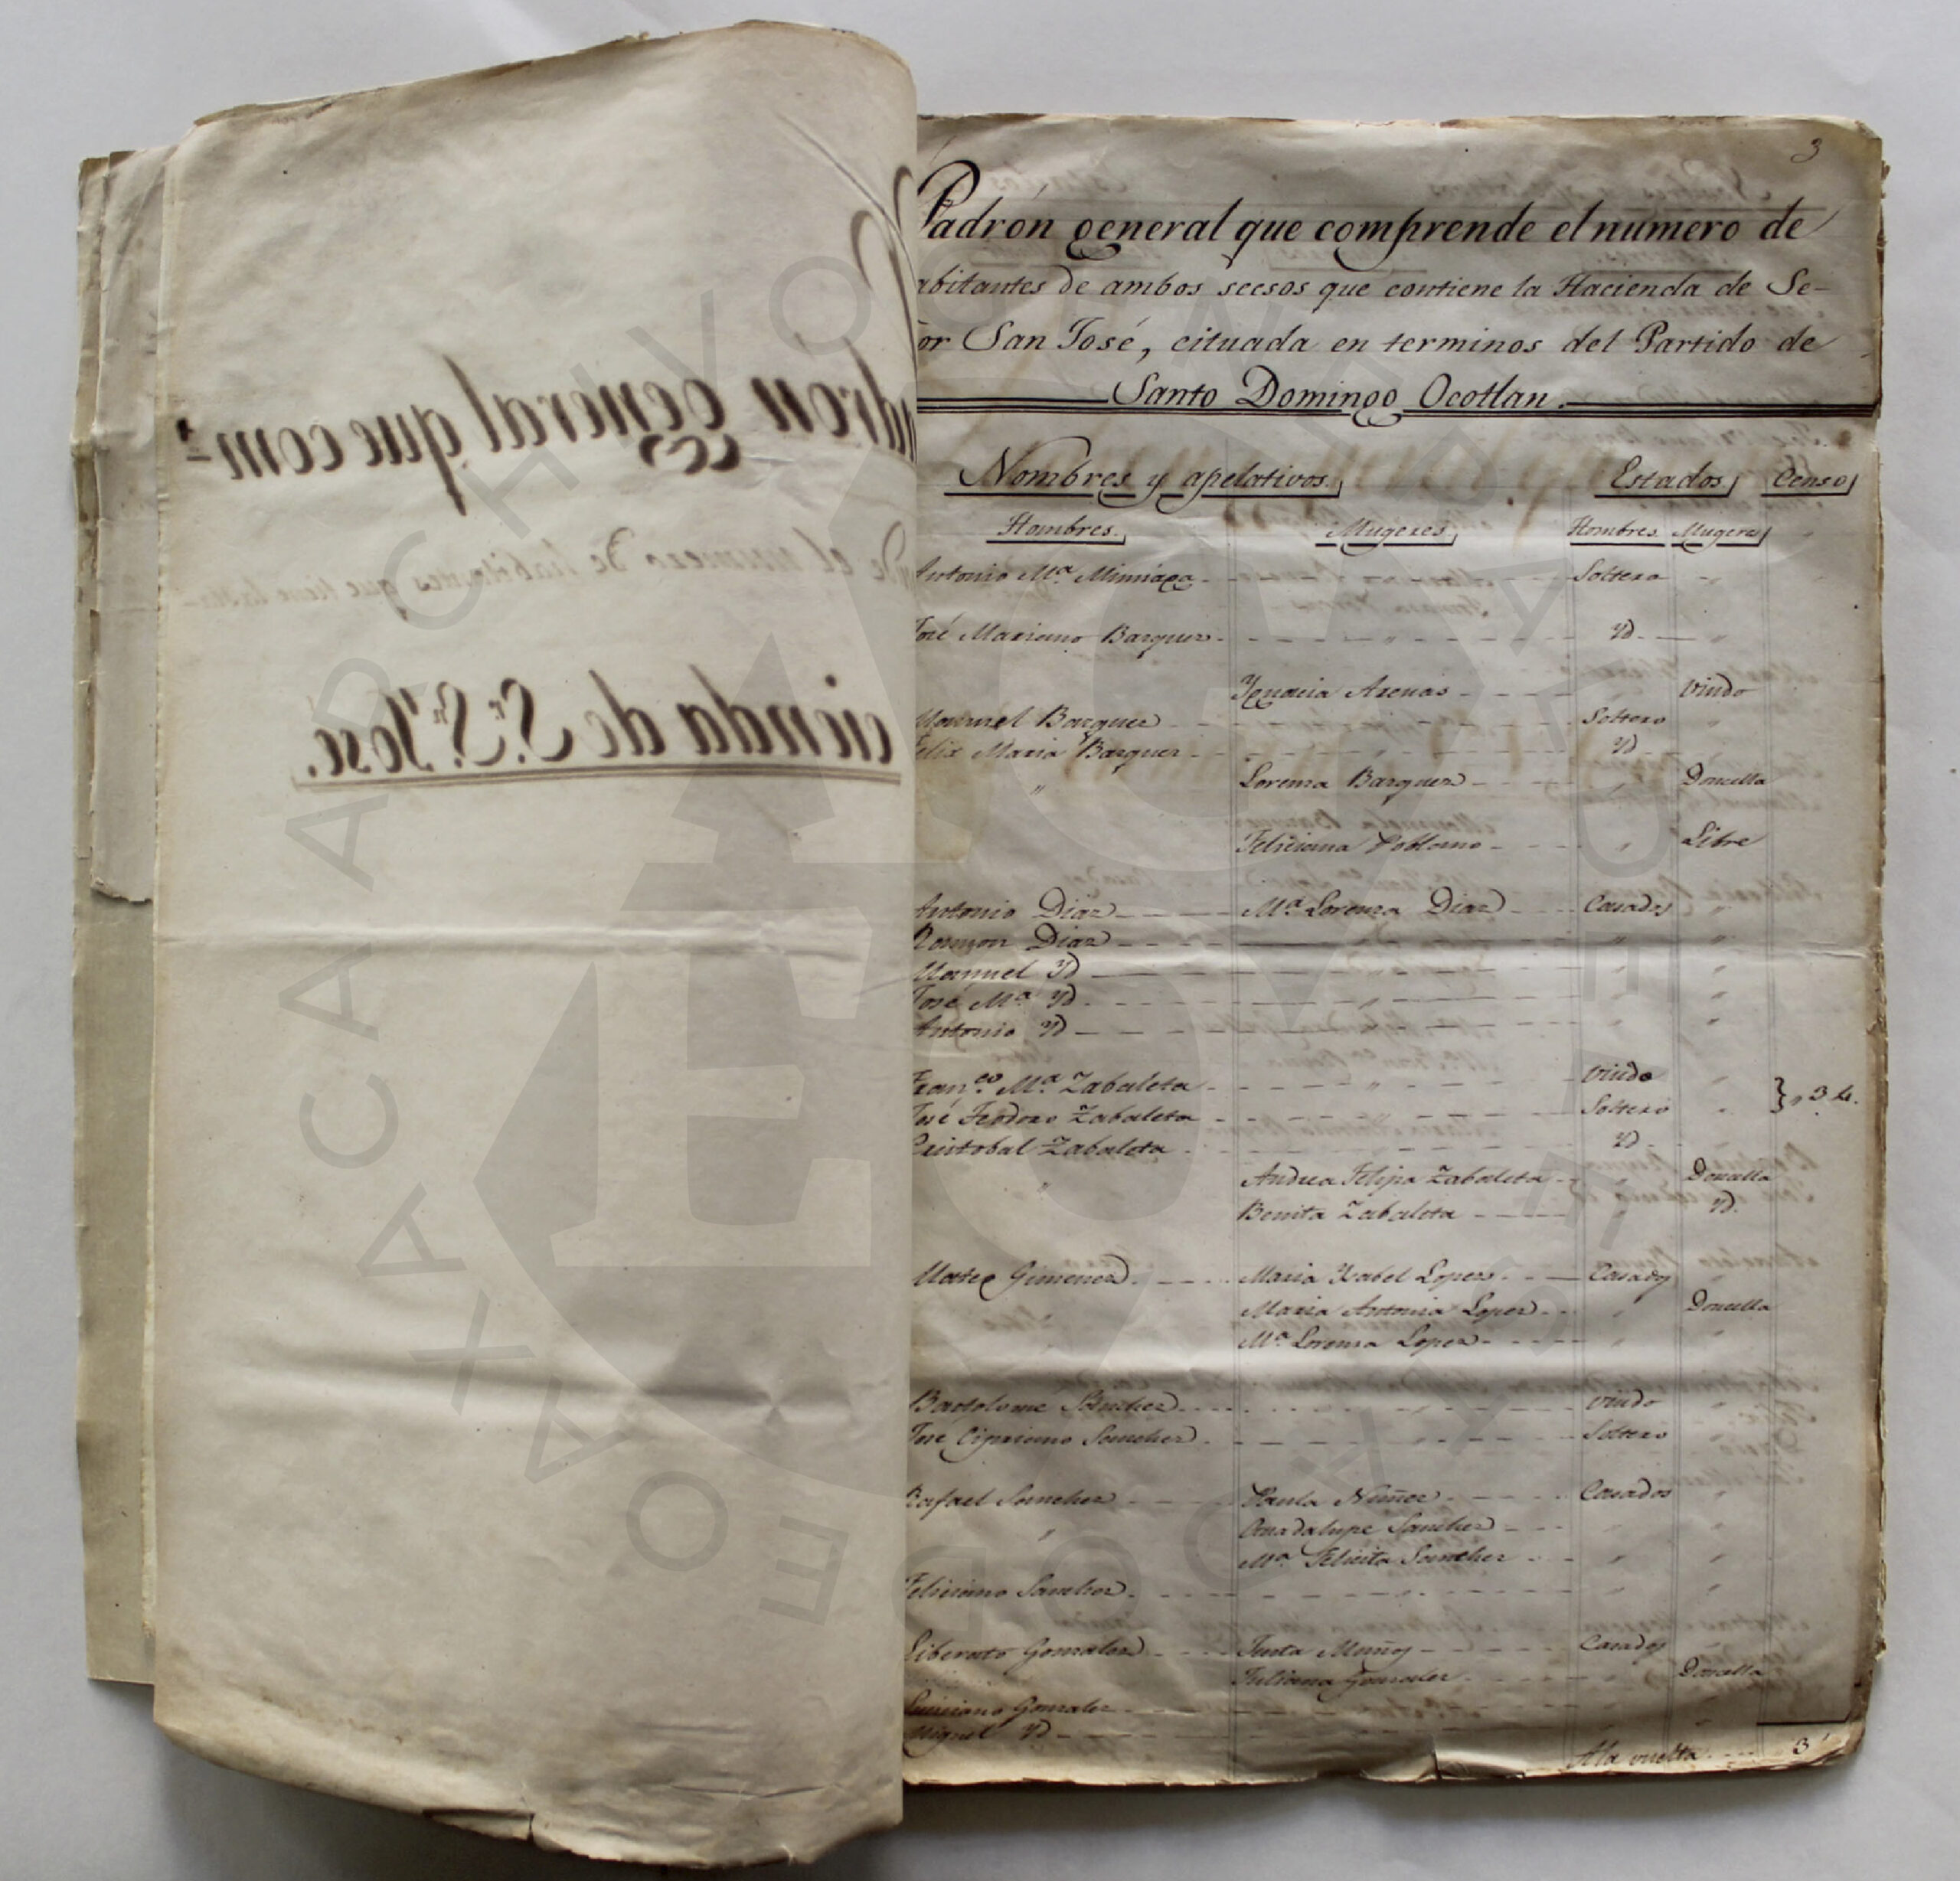 3
Padrón general que comprende el numero de
abitantes de ambos secsos que contiene la Hacienda de Se-
or San José, cituada en terminos del Partido de
Santo Domingo Ocotlan.
Nombres y apelativos. Estados Censo
Hombres. Mugeres Hombres Mugeres
Antonio Mª Minnaga Soltero
José Mariano Barquez Yd.
Ygnacia Arenas Viudo
Manuel Barquez Soltero
Felix Maria Barquez Yd
Lorenza Barquez Doncella
Feliciana Poblano Libre
Antonio Diaz Mª Lorenza Diaz Casados
Ramon Diaz
Manuel Yd
José Mª Yd
Antonio Yd
Franco Mª Zabaleta Viudo
José Teodoro Zabaleta Soltero } 3
Cristobal Zabaleta Yd
Andrea Felipa Zabaleta Doncella
Benita Zabaleta Yd.
Mateo Gimenez Maria Ysabel Lopez Casados
Maria Antonia Lopez Doncella
Mª Lorenza Lopez
Bartolomé Sanchez Viudo
José Cipriano Sanchez Soltero
Rafael Sanchez Paula Nuñez Casados
Guadalupe Sanchez
Mª Felicita Sanchez
Feliciano Sanchez
Liberato Gonzalez Justa Muñoz Casados
Juliana Gonzalez Doncella
Gonzalez
Miguel Yd
A la vuelta 3
adron general que com-
de el numero de habitantes que tiene la Ha-
cienda de Sr. Sn. José.
ARCHIVO GENERAL DEL ESTADO DE OAXACA